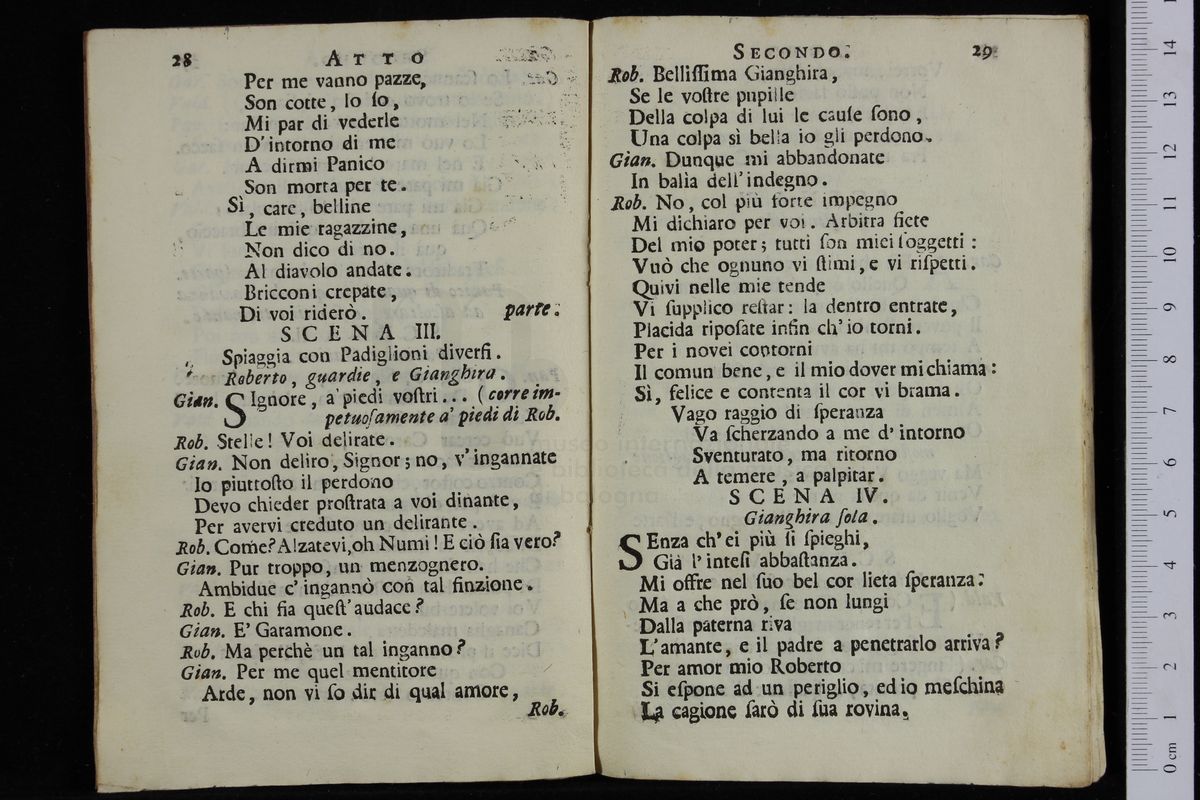 28 ATTO
Per me vanno pazze,
Son cotte, lo ſo,
Mi par di vederle
D'intorno di me
A dirmi Panico
Son morta per te.
Sì, care, belline
Le mie ragazzine,
Non dico di no.
Al diavolo andate.
Bricconi crepate,
Di voi riderò. parte.
SCENA III.
Spiaggia con Padiglioni diverſi.
Roberto, guardie, e Gianghira.
Gian. SIgnore, a' piedi voſtri... (corre im-
petuoſamente a' piedi di Rob.
Rob. Stelle! Voi delirate.
Gian. Non deliro, Signor; no, v'ingannate
Io piuttoſto il perdono
Devo chieder proſtrata a voi dinante,
Per avervi creduto un delirante.
Rob. Come? Alzatevi, oh Numi! E ciò ſia vero?
Gian. Pur troppo, un menzognero.
Ambidue c'ingannò con tal finzione.
Rob. E chi fia queſt'audace?
Gian. E' Garamone.
Rob. Ma perchè un tal inganno?
Gian. Per me quel mentitore
Arde, non vi ſo dir di qual amore,
Rob.
SECONDO. 29
Rob. Belliſſima Gianghira,
Se le voſtre pupille
Della colpa di lui le cauſe ſono,
Una colpa sì bella io gli perdono.
Gian. Dunque mi abbandonate
In balìa dell'indegno.
Rob. No, col più forte impegno
Mi dichiaro per voi. Arbitra ſiete
Del mio poter; tutti ſon miei ſoggetti:
Vuò che ognuno vi ſtimi, e vi riſpetti.
Quivi nelle mie tende
Vi ſupplico reſtar: la dentro entrate,
Placida ripoſate infin ch'io torni.
Per i novei contorni
Il comun bene, e il mio dover mi chiama:
Sì, felice e contenta il cor vi brama.
Vago raggio di ſperanza
Va ſcherzando a me d'intorno
Sventurato, ma ritorno
A temere, a palpitar.
SCENA IV.
Gianghira ſola.
SEnza ch'ei più ſi ſpieghi,
Già l'inteſi abbaſtanza.
Mi offre nel ſuo bel cor lieta ſperanza:
Ma a che prò, ſe non lungi
Dalla paterna riva
L'amante, e il padre a penetrarlo arriva?
Per amor mio Roberto
Si eſpone ad un periglio, ed io meſchina
La cagione ſarò di ſua rovina.
0 cm 1 2 3 4 5 6 7 8 9 10 11 12 13 14